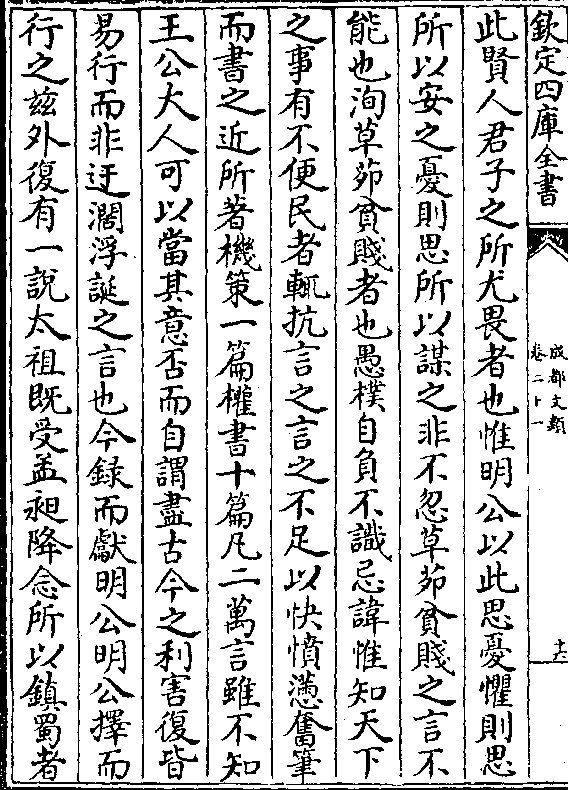 欽定四庫全書
成都文類
卷二十一
十六
此賢人君子之所尤畏者也惟明公以此思憂懼則思
所以安之憂則思所以謀之非不忽草茆貧賤之言不
能也洵草茆貧賤者也愚樸自負不識忌諱惟知天下
之事有不便民者輒抗言之言之不足以快憤懣奮筆
而書之近所著機策一篇權書十篇凡二萬言雖不知
王公大人可以當其意否而自謂盡古今之利害復皆
易行而非迂濶浮誕之言也今録而獻明公明公擇而
行之兹外復有一說太祖既受孟昶降念所以鎮蜀者